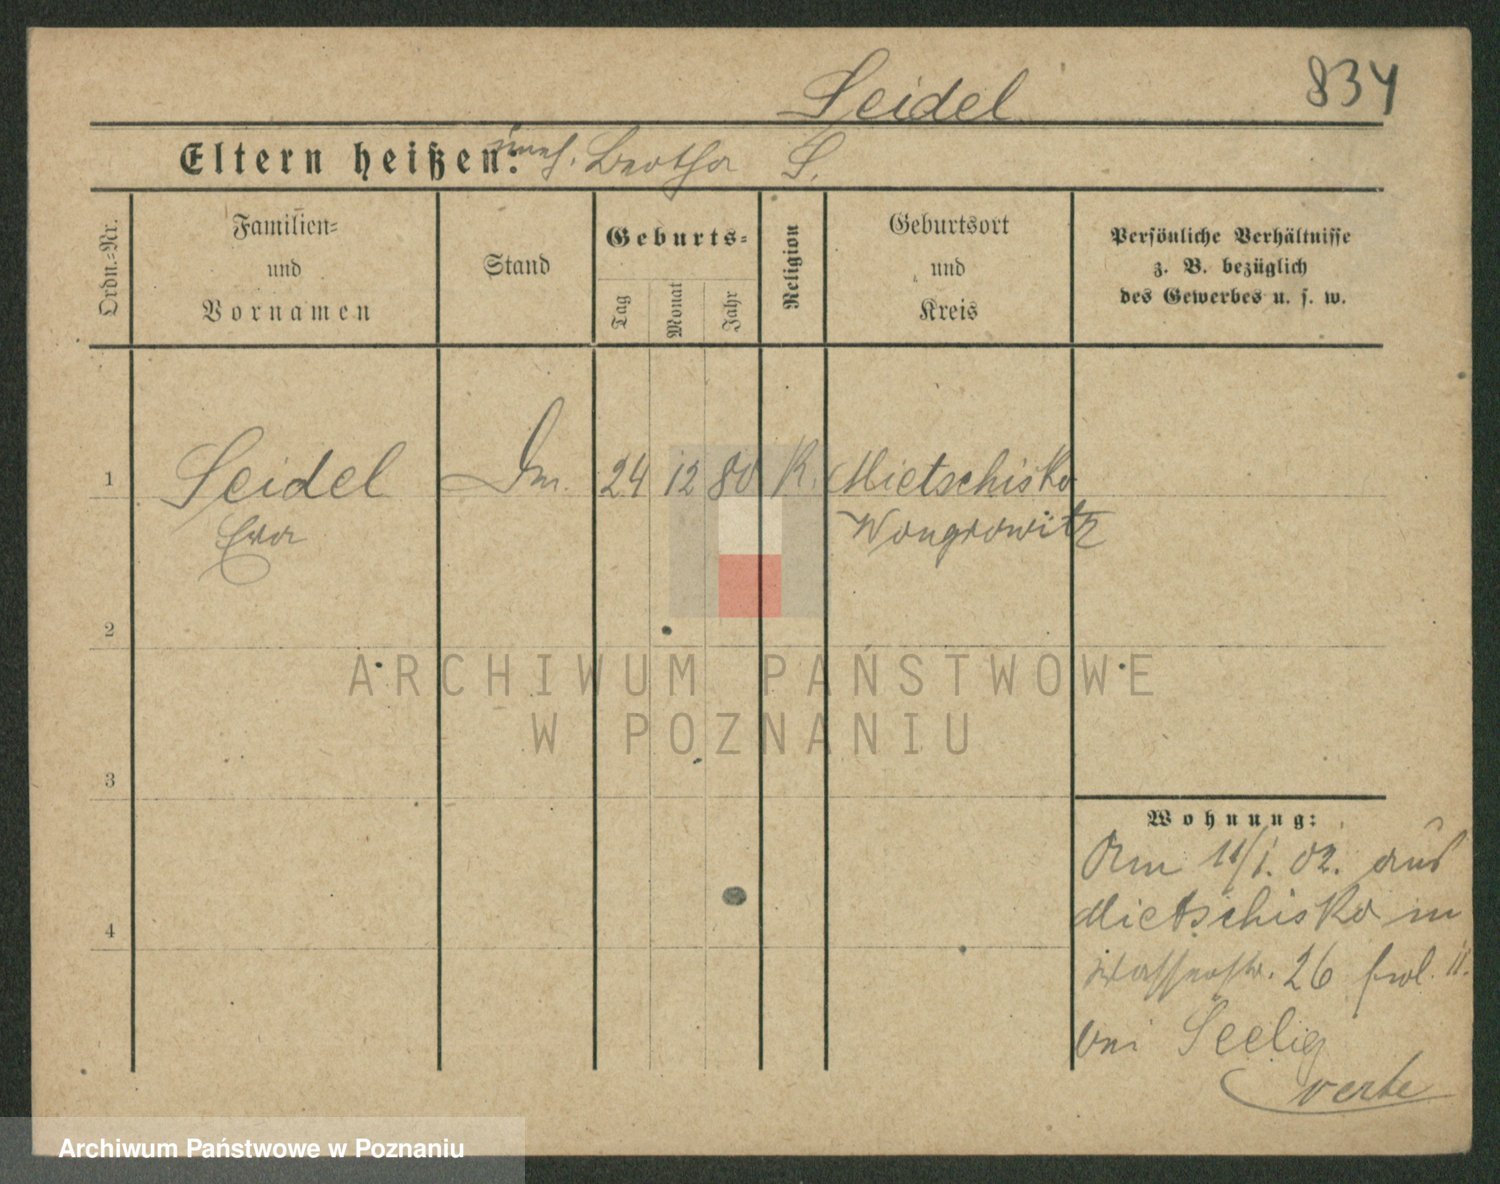 834
Seidel
Eltern heißen: uneh. Bertha S.
Ordn.-Nr.
Familien-
und
Vornamen
Stand
Geburts-
Tag
Monat
Jahr
Religion
Geburtsort
und
Kreis
Persönliche Verhältnisse
z. B. bezüglich
des Gewerbes u. s. w.
1
Seidel
Eva
24 12 80 K.
Mietschisko
Wongrowitz
2
ARCHIWUM PAŃSTWOWE
W POZNANIU
3
4
Wohnung:
Am 11/1. 02. aus
Mietschisko in
Wasserstr. 26 II.
bei Seelig
Archiwum Państwowe w Poznaniu